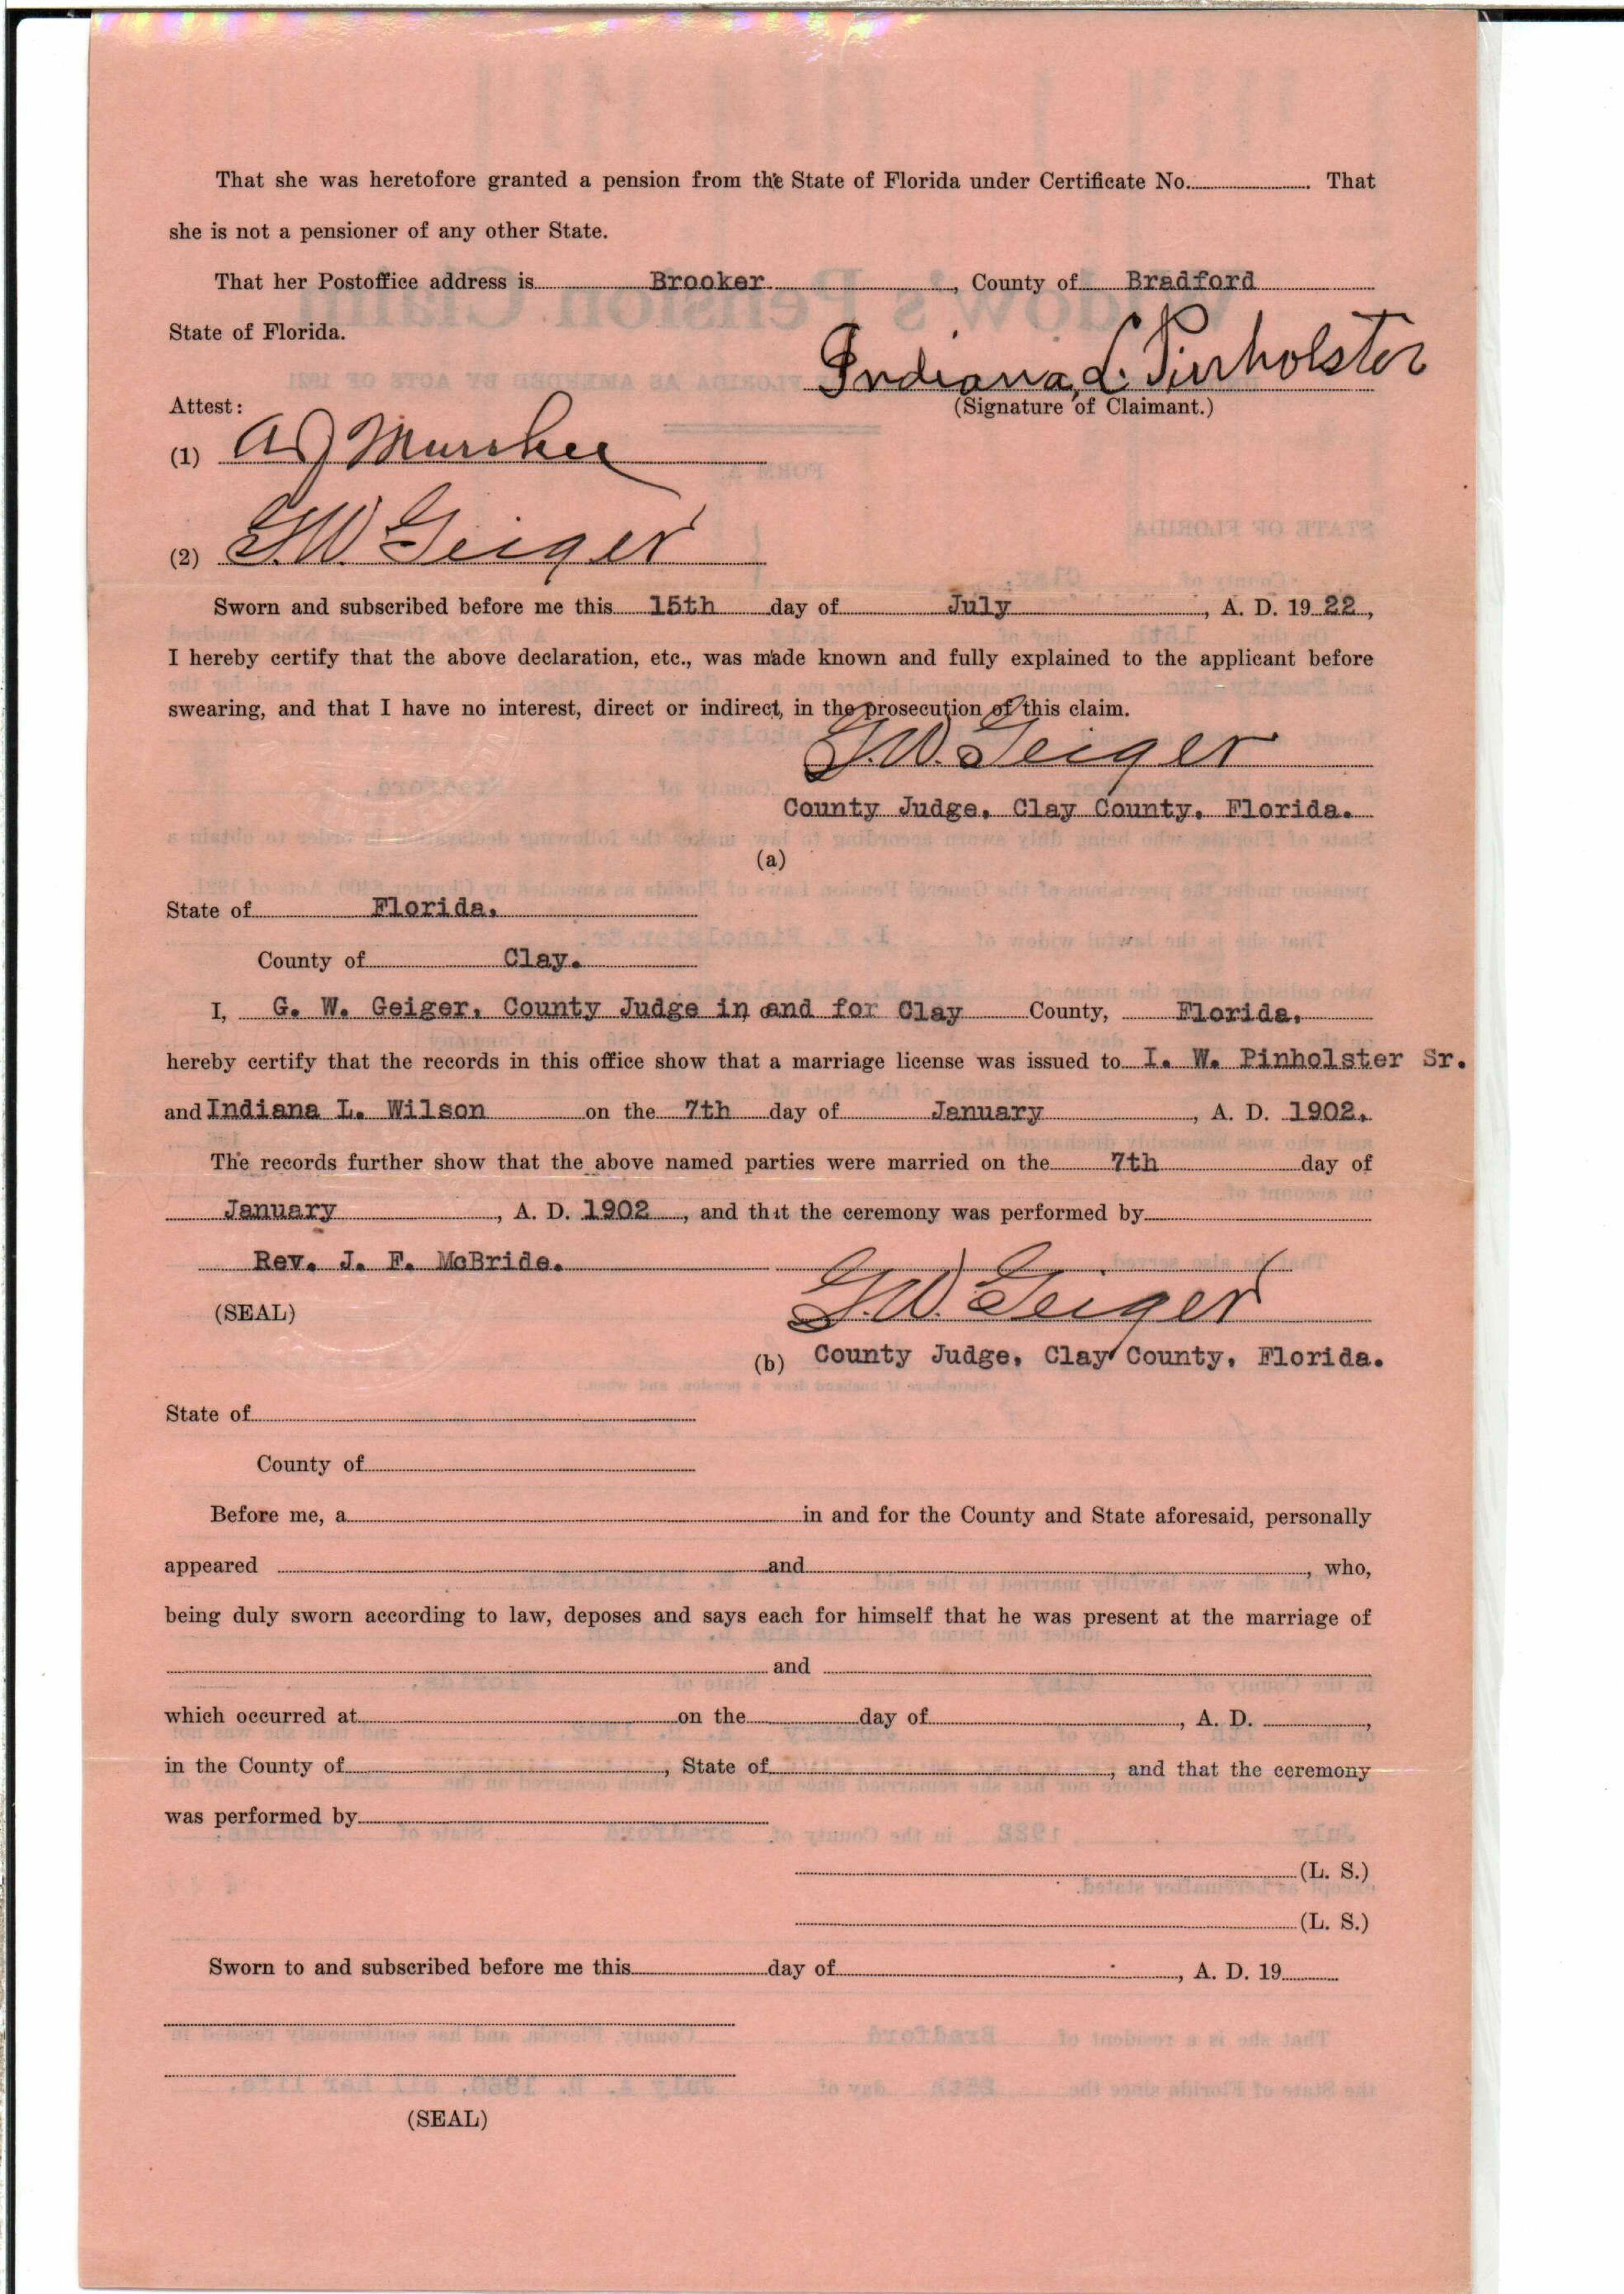 That she was heretofore granted a pension from the State of Florida under Certificate No. . That
she is not a pensioner of any other State.
That her Postoffice address is Brooker , County of Bradford
State of Florida.
Indiana, L. Pinholster
(Signature of Claimant.)
Attest:
(1)
(2) G.W. Geiger
Sworn and subscribed before me this 15th day of July , A. D. 19 22 ,
I hereby certify that the above declaration, etc., was made known and fully explained to the applicant before
swearing, and that I have no interest, direct or indirect, in the prosecution of this claim.
G.W. Geiger
County Judge, Clay County, Florida.
(a)
State of Florida.
County of Clay.
I, G. W. Geiger, County Judge in and for Clay County, Florida,
hereby certify that the records in this office show that a marriage license was issued to I. W. Pinholster Sr.
and Indiana L. Wilson on the 7th day of January , A. D. 1902.
The records further show that the above named parties were married on the 7th day of
January , A. D. 1902 , and that the ceremony was performed by
Rev. J. F. McBride.
(SEAL)
G.W. Geiger
(b) County Judge, Clay County, Florida.
State of
County of
Before me, a in and for the County and State aforesaid, personally
appeared and , who,
being duly sworn according to law, deposes and says each for himself that he was present at the marriage of
and
which occurred at on the day of , A. D. ,
in the County of , State of , and that the ceremony
was performed by
(L. S.)
(L. S.)
Sworn to and subscribed before me this day of , A. D. 19
(SEAL)